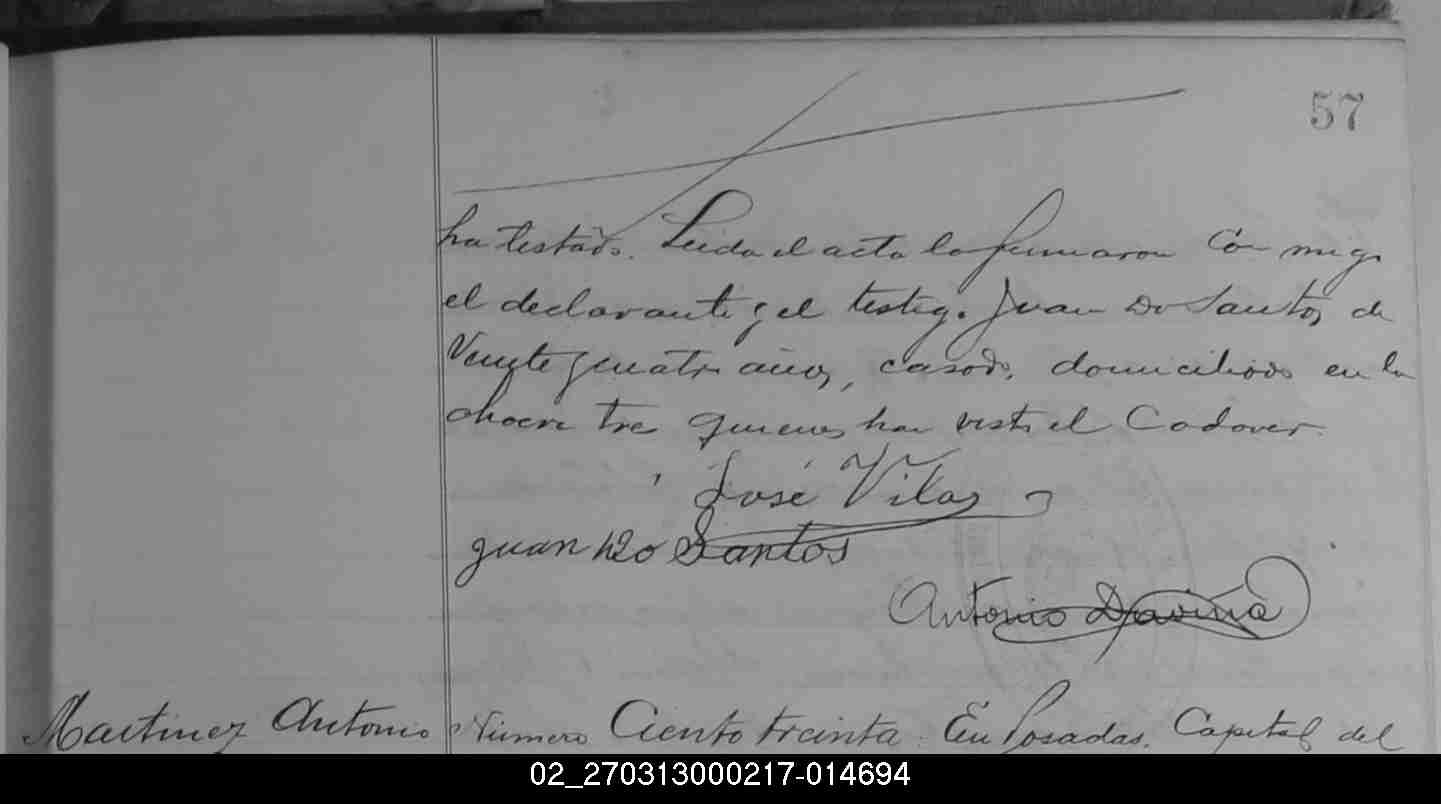 57
ha testado. Leida el acta la firmaron con migo
el declarante y el testigo Juan Do Santos, de
Veinte y cuatro años, casado, domiciliado en la
chacra tre quienes han visto el Cadaver.
José Vilas
Juan Do Santos
Antonio Daviña
Martinez Antonio Número Ciento treinta. En Posadas, Capital del
02_270313000217-014694